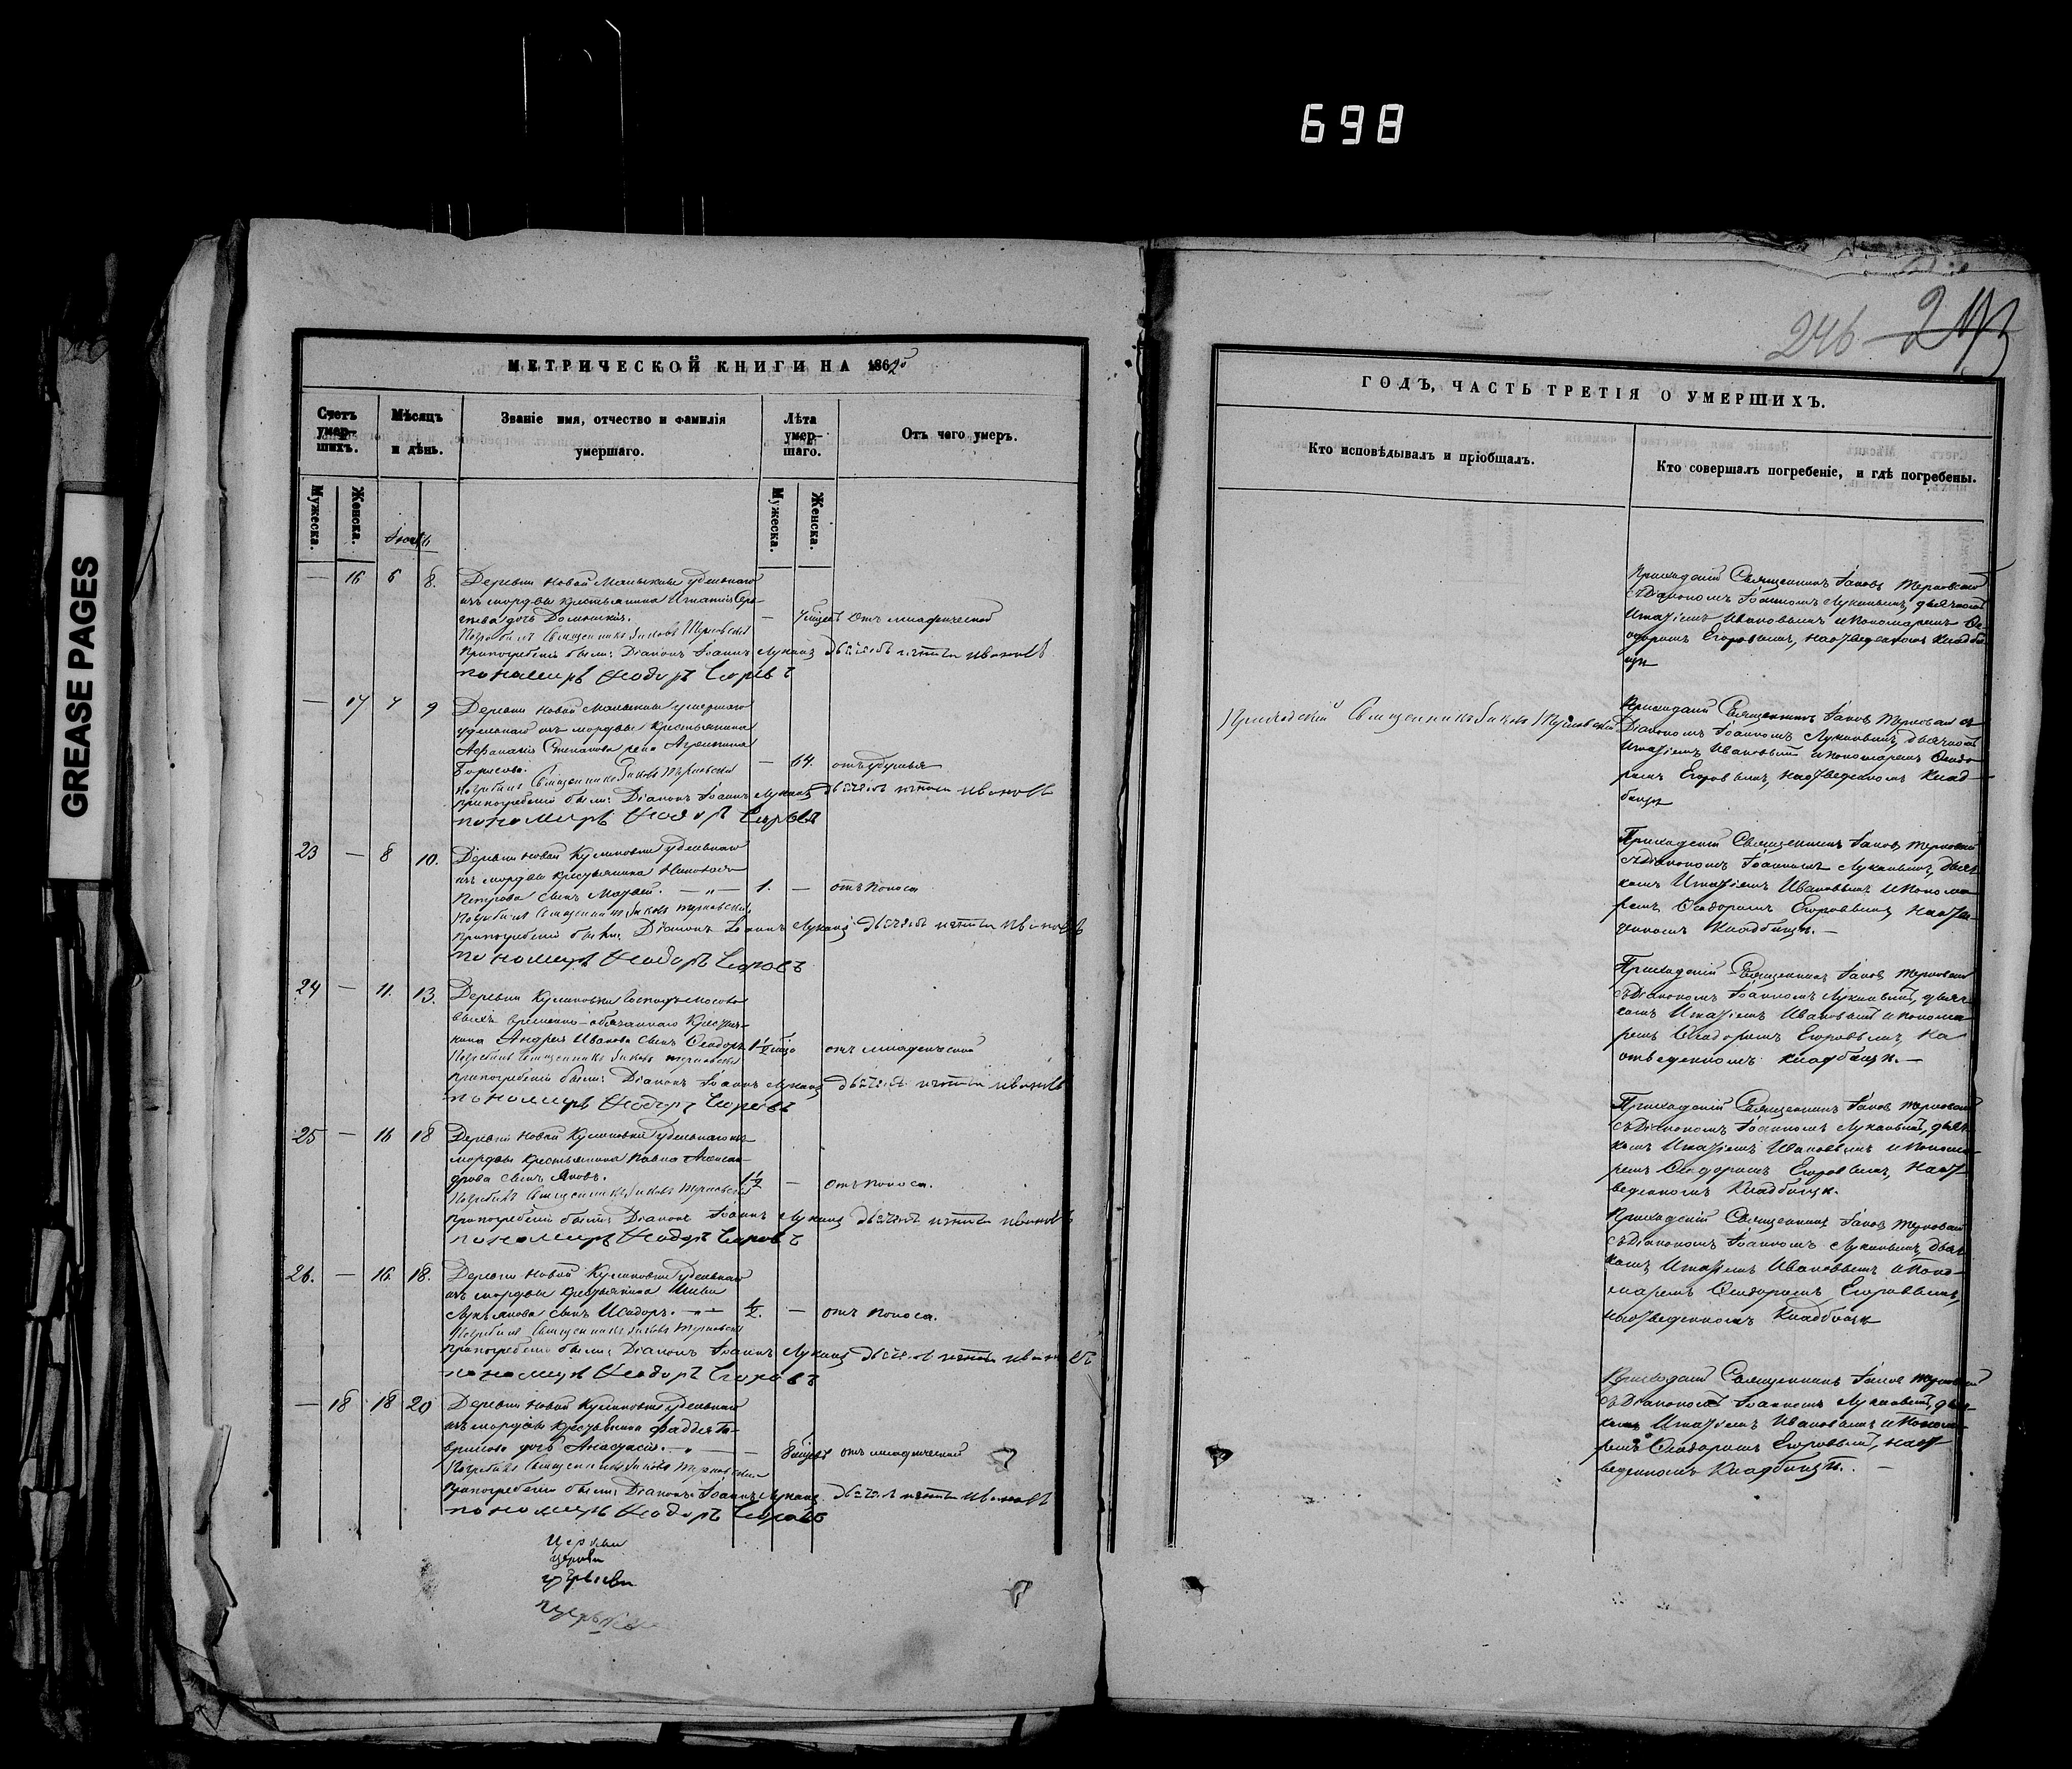 698
GREASE PAGES
246 243
МЕТРИЧЕСКОЙ КНИГИ НА 1862й
Счетъ умер-шихъ.
Мѣсяцъ и день.
Званіе имя, отчество и фамилія умершаго.
Лѣта умер-шаго.
Отъ чего умеръ.
Мужеска.
Женска.
Мужеска.
Женска.
— 16 6 8. Деревни Новой Малыклы удельнаго
изъ мордвы крестьянина Игнатія Сер-
гѣева дочь Домникія. — 7 мѣсяц отъ младенческой
Погребалъ Священникъ Іаковъ Терновскій
При погребеніи были: Діаконъ Іоаннъ Лукинъ дьячекъ Игнатій Ивановъ
пономарь Ѳеодоръ Егоровъ
— 17 7 9 Деревни Новой Малыклы умершаго
удельнаго изъ мордвы крестьянина
Афанасія Степанова жена Агрепина
Борисова. — 64. отъ удушья
Погребалъ Священникъ Іаковъ Терновскій
При погребеніи были: Діаконъ Іоаннъ Лукинъ дьячекъ Игнатій Ивановъ
пономарь Ѳеодоръ Егоровъ
23 — 8 10. Деревни Новой Куликовки удельнаго
изъ мордвы крестьянина Николая
Петрова сынъ Матвей. — 1. — отъ поноса
Погребалъ Священникъ Іаковъ Терновскій
При погребеніи были: Діаконъ Іоаннъ Лукинъ дьячекъ Игнатій Ивановъ
пономарь Ѳеодоръ Егоровъ
24 — 11. 13. Деревни Куликовки
временно-обязаннаго крестья-
нина Андрея Иванова сынъ Ѳеодоръ 1½ отъ младенческой
Погребалъ Священникъ Іаковъ Терновскій
При погребеніи были: Діаконъ Іоаннъ Лукинъ дьячекъ Игнатій Ивановъ
пономарь Ѳеодоръ Егоровъ
25 — 16 18 Деревни Новой Куликовки удельнаго изъ
мордвы крестьянина Павла Алексан-
дрова сынъ Яковъ. 1½ — отъ поноса.
Погребалъ Священникъ Іаковъ Терновскій
При погребеніи были: Діаконъ Іоаннъ Лукинъ дьячекъ Игнатій Ивановъ
пономарь Ѳеодоръ Егоровъ
26. — 16. 18. Деревни Новой Куликовки удельнаго
изъ мордвы крестьянина
Лукьянова сынъ Исидоръ. — ½. — отъ поноса.
Погребалъ Священникъ Іаковъ Терновскій
При погребеніи были: Діаконъ Іоаннъ Лукинъ дьячекъ Игнатій Ивановъ
пономарь Ѳеодоръ Егоровъ
— 18 18 20 Деревни Новой Куликовки удельнаго
изъ мордвы крестьянина Фаддея Га-
врилова дочь Анастасія. — 8 мѣсяц отъ младенческой
Погребалъ Священникъ Іаковъ Терновскій
При погребеніи были: Діаконъ Іоаннъ Лукинъ дьячекъ Игнатій Ивановъ
пономарь Ѳеодоръ Егоровъ
Церкви
церкви
ГОДЪ, ЧАСТЬ ТРЕТІЯ О УМЕРШИХЪ.
Кто исповѣдывалъ и пріобщалъ.
Кто совершалъ погребеніе, и гдѣ погребены.
Приходскій Священникъ Іаковъ Терновскій
съ Діакономъ Іоанномъ Лукинымъ, дьячкомъ
Игнатіемъ Ивановымъ и пономаремъ Ѳе-
одоромъ Егоровымъ, на отведенномъ кладби-
щѣ
Приходскій Священникъ Іаковъ Терновскій
Приходскій Священникъ Іаковъ Терновскій съ
Діакономъ Іоанномъ Лукинымъ, дьячкомъ
Игнатіемъ Ивановымъ и пономаремъ Ѳеодо-
ромъ Егоровымъ, на отведенномъ клад-
бищѣ
Приходскій Священникъ Іаковъ Терновскій
съ Діакономъ Іоанномъ Лукинымъ, дьяч-
комъ Игнатіемъ Ивановымъ и понома-
ремъ Ѳеодоромъ Егоровымъ, на отве-
денномъ кладбищѣ. —
Приходскій Священникъ Іаковъ Терновскій
съ Діакономъ Іоанномъ Лукинымъ, дьяч-
комъ Игнатіемъ Ивановымъ и понома-
ремъ Ѳеодоромъ Егоровымъ, на
отведенномъ кладбищѣ. —
Приходскій Священникъ Іаковъ Терновскій
съ Діакономъ Іоанномъ Лукинымъ, дьяч-
комъ Игнатіемъ Ивановымъ и понома-
ремъ Ѳеодоромъ Егоровымъ, на от-
веденномъ кладбищѣ.
Приходскій Священникъ Іаковъ Терновскій
съ Діакономъ Іоанномъ Лукинымъ, дьяч-
комъ Игнатіемъ Ивановымъ и поно-
маремъ Ѳеодоромъ Егоровымъ,
на отведенномъ кладбищѣ
Приходскій Священникъ Іаковъ Терновскій
съ Діакономъ Іоанномъ Лукинымъ, дьяч-
комъ Игнатіемъ Ивановымъ и понома-
ремъ Ѳеодоромъ Егоровымъ, на от-
веденномъ кладбищѣ. —